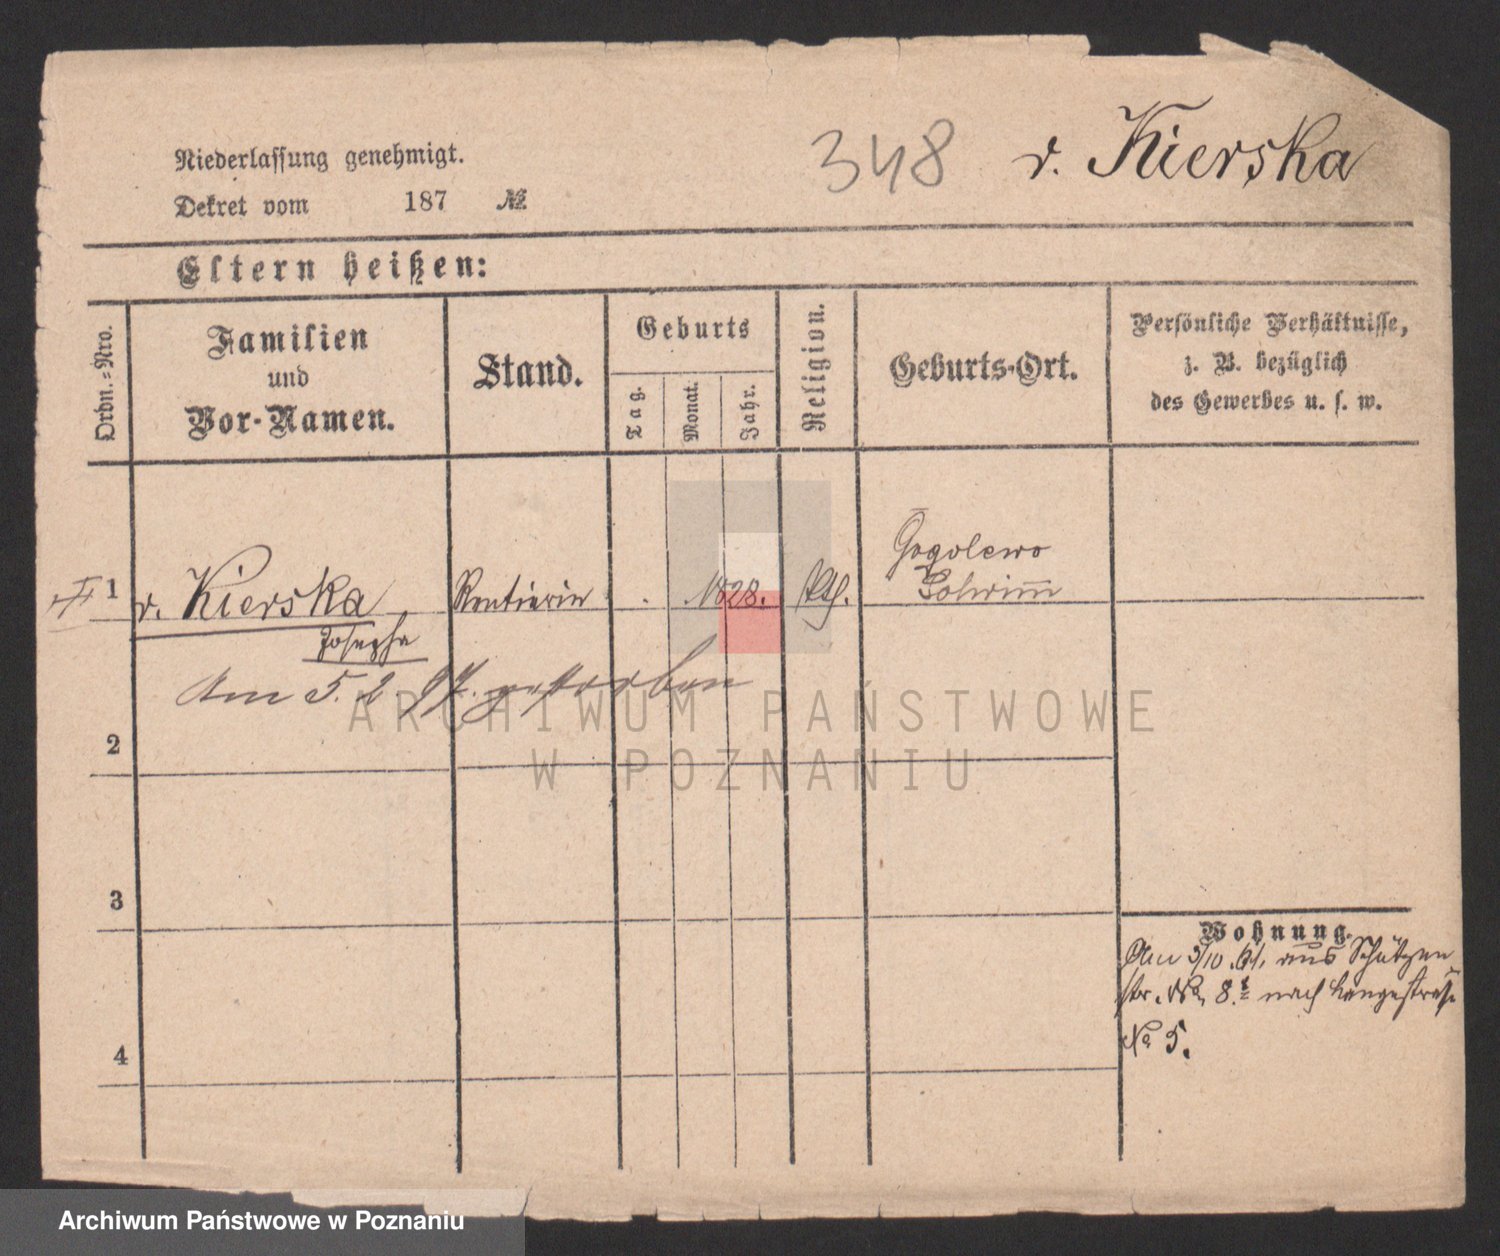 348 v. Kierska
Niederlassung genehmigt.
Dekret vom 187 №
Eltern heißen:
Ordn.-Nro.
Familien
und
Vor-Namen.
Stand.
Geburts
Tag.
Monat.
Jahr.
Religion.
Geburts-Ort.
Persönliche Verhältnisse,
z. B. bezüglich
des Gewerbes u. s. w.
1 v. Kierska Rentierin 1828. kth. Gogolewo
Schrimm
Josepha
Am 5. 2. gestorben
2
3
4
Wohnung.
Am 3/10 aus Schützen
str. No 8. nach Langestraße
No 5.
ARCHIWUM PAŃSTWOWE
W POZNANIU
Archiwum Państwowe w Poznaniu